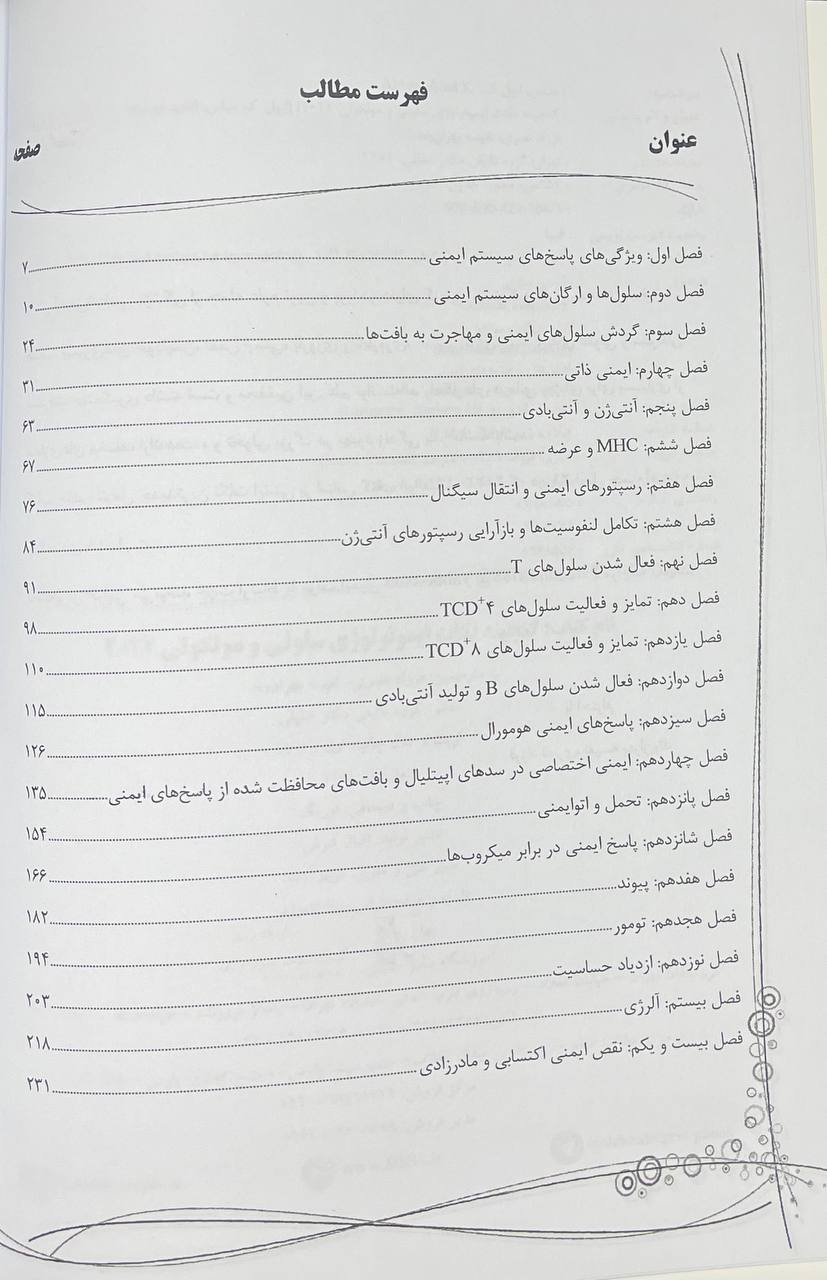 فهرست مطالب
عنوان صفحه
فصل اول: ویژگی‌های پاسخ‌های سیستم ایمنی ۷
فصل دوم: سلول‌ها و ارگان‌های سیستم ایمنی ۱۰
فصل سوم: گردش سلول‌های ایمنی و مهاجرت به بافت‌ها ۲۴
فصل چهارم: ایمنی ذاتی ۳۱
فصل پنجم: آنتی‌ژن و آنتی‌بادی ۶۳
فصل ششم: MHC و عرضه ۶۷
فصل هفتم: رسپتورهای ایمنی و انتقال سیگنال ۷۶
فصل هشتم: تکامل لنفوسیت‌ها و بازآرایی رسپتورهای آنتی‌ژن ۸۴
فصل نهم: فعال شدن سلول‌های T ۹۱
فصل دهم: تمایز و فعالیت سلول‌های TCD⁺۴ ۹۸
فصل یازدهم: تمایز و فعالیت سلول‌های TCD⁺۸ ۱۱۰
فصل دوازدهم: فعال شدن سلول‌های B و تولید آنتی‌بادی ۱۱۵
فصل سیزدهم: پاسخ‌های ایمنی هومورال ۱۲۶
فصل چهاردهم: ایمنی اختصاصی در سدهای اپیتلیال و بافت‌های محافظت شده از پاسخ‌های ایمنی ۱۳۵
فصل پانزدهم: تحمل و اتوایمنی ۱۵۴
فصل شانزدهم: پاسخ ایمنی در برابر میکروب‌ها ۱۶۶
فصل هفدهم: پیوند ۱۸۲
فصل هجدهم: تومور ۱۹۴
فصل نوزدهم: ازدیاد حساسیت ۲۰۳
فصل بیستم: آلرژی ۲۱۸
فصل بیست و یکم: نقص ایمنی اکتسابی و مادرزادی ۲۳۱